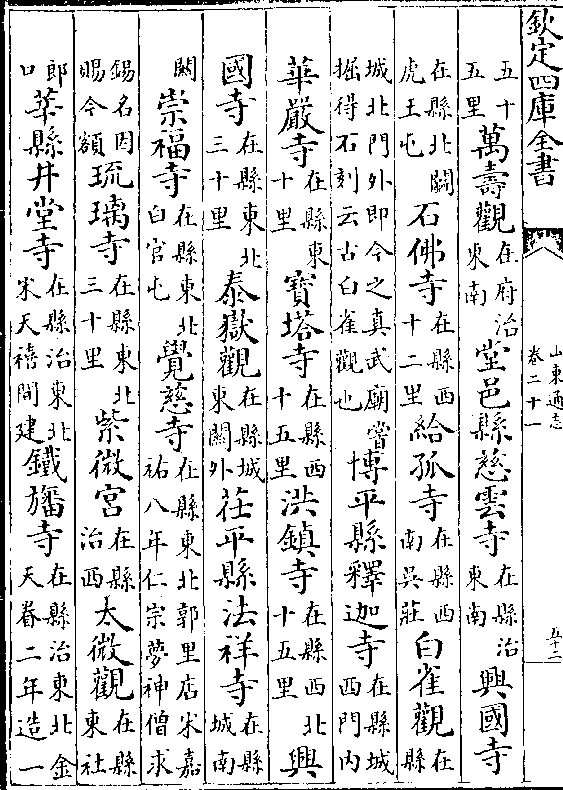 欽定四庫全書
山東通志
卷二十一
五十二
五十五里萬壽觀在府治東南堂邑縣慈雲寺在縣治東南興國寺
在縣北關虎王屯石佛寺在縣西十二里給孤寺在縣西南吳莊白雀觀在縣
城北門外即今之真武廟嘗掘得石刻云古白雀觀也博平縣釋迦寺在縣城西門内
華嚴寺在縣東十里寶塔寺在縣西十五里洪鎮寺在縣西北十五里興
國寺在縣東北三十里泰嶽觀在縣城東關外茌平縣法祥寺在縣城南
關崇福寺在縣東北白官屯覺慈寺在縣東北郭里店宋嘉祐八年仁宗夢神僧求
錫名因賜今額琉璃寺在縣東北三十里紫微宮在縣治西太微觀在縣東社
郎口莘縣井堂寺在縣治東北宋天禧間建鐵旛寺在縣治東北金天眷二年造一